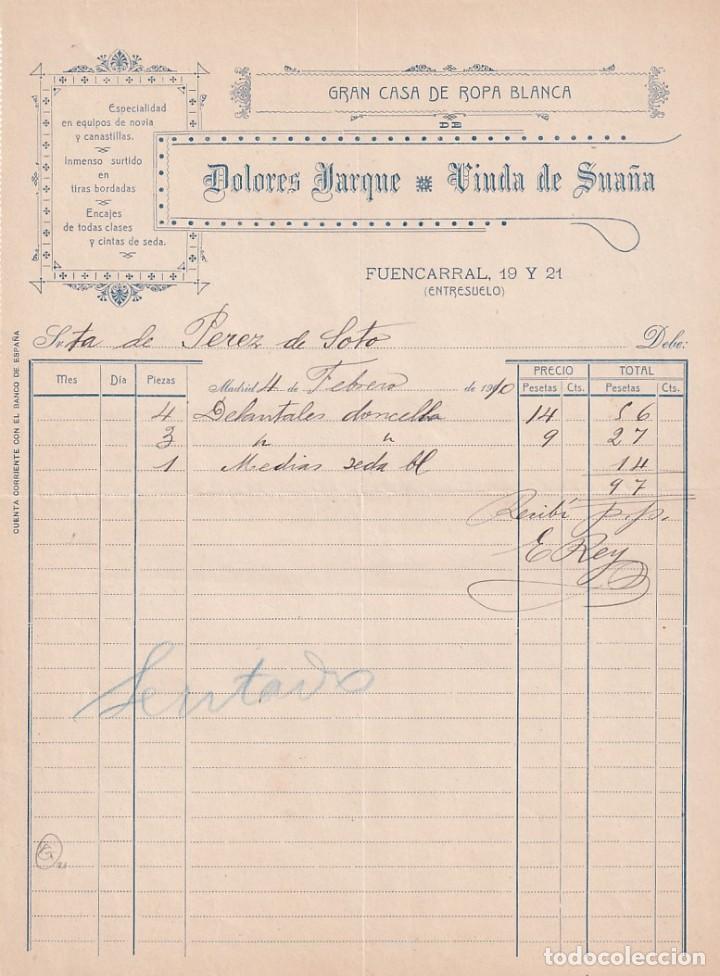 Especialidad
en equipos de novia
y canastillas.
Inmenso surtido
en
tiras bordadas
Encajes
de todas clases
y cintas de seda.
GRAN CASA DE ROPA BLANCA
DE
Dolores Jarque Viuda de Suaña
FUENCARRAL, 19 Y 21
(ENTRESUELO)
CUENTA CORRIENTE CON EL BANCO DE ESPAÑA
Srta de Perez de Soto Debe:
Mes Día Piezas Madrid 4 de Febrero de 1910 PRECIO TOTAL
Pesetas Cts. Pesetas Cts.
4 Delantales doncella 14 56
3 " " 9 27
1 Medias seda bl 14
97
Recibí p.p.
E Rey
Sentado
todocoleccion